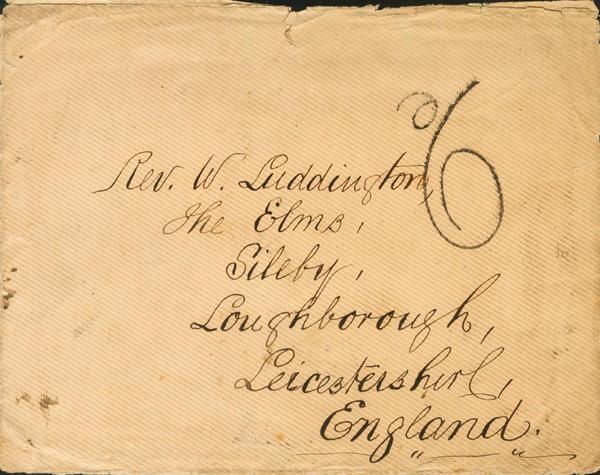 6
Rev. W. Luddington,
The Elms,
Sileby,
Loughborough,
Leicestershire,
England.